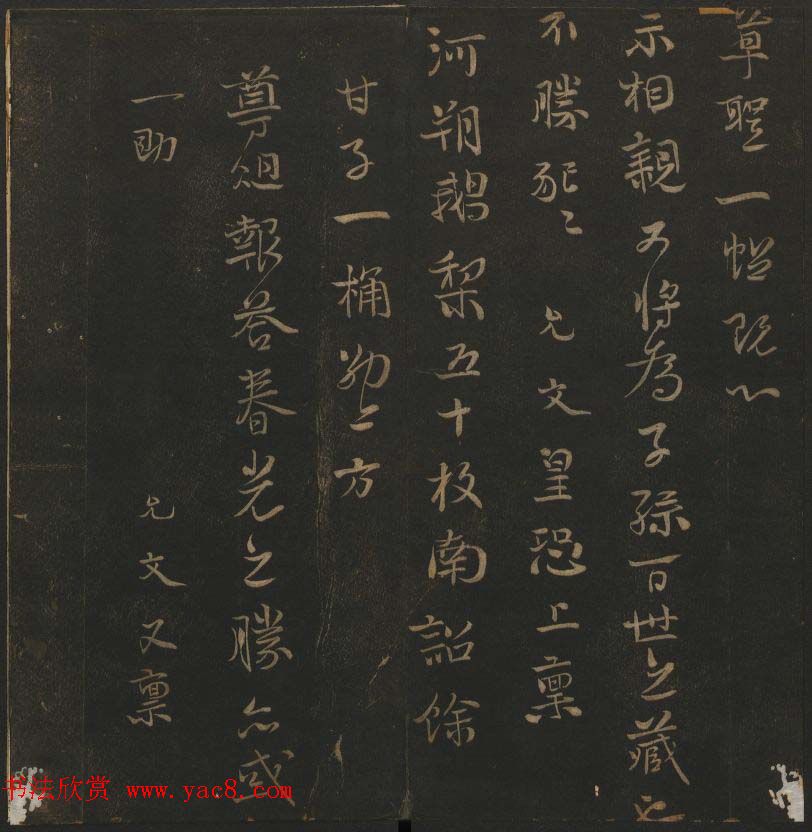 草聖一幅既以
示相親又將為子孫百世之藏也
不勝
允文皇恐上稟
河朔鵝梨五十枚南詔餘
甘子一桶 方
尊俎報答春光之勝亦或
一助
允文又稟
书法欣赏 www.yac8.com